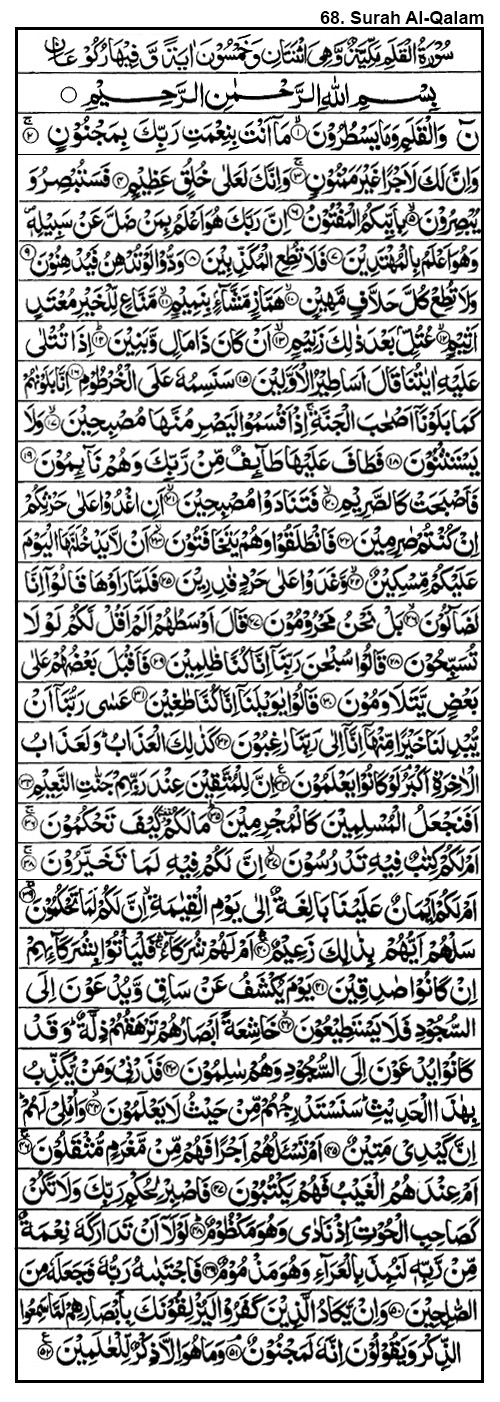 68. Surah Al-Qalam
سُوْرَةُ الْقَلَمِ مَكِّيَّةٌ وَّهِيَ اثْنَتَانِ وَخَمْسُوْنَ اٰيَةً وَّ فِيْهَا رُكُوْعَانِ
بِسْمِ اللّٰهِ الرَّحْمٰنِ الرَّحِيْمِ ○
نٓ وَالْقَلَمِ وَمَا يَسْطُرُوْنَ ۙ﴿۱﴾ مَاۤ اَنْتَ بِنِعْمَتِ رَبِّكَ بِمَجْنُوْنٍ ۚ﴿۲﴾
وَاِنَّ لَكَ لَاَجْرًا غَيْرَ مَمْنُوْنٍ ۚ﴿۳﴾ وَاِنَّكَ لَعَلٰى خُلُقٍ عَظِيْمٍ ﴿۴﴾ فَسَتُبْصِرُ وَ
يُبْصِرُوْنَ ۙ﴿۵﴾ بِاَيِّكُمُ الْمَفْتُوْنُ ﴿۶﴾ اِنَّ رَبَّكَ هُوَ اَعْلَمُ بِمَنْ ضَلَّ عَنْ سَبِيْلِهٖ ۪
وَهُوَ اَعْلَمُ بِالْمُهْتَدِيْنَ ﴿۷﴾ فَلَا تُطِعِ الْمُكَذِّبِيْنَ ﴿۸﴾ وَدُّوْا لَوْ تُدْهِنُ فَيُدْهِنُوْنَ ﴿۹﴾
وَلَا تُطِعْ كُلَّ حَلَّافٍ مَّهِيْنٍ ۙ﴿۱۰﴾ هَمَّازٍ مَّشَّآءٍۭ بِنَمِيْمٍ ۙ﴿۱۱﴾ مَّنَّاعٍ لِّلْخَيْرِ مُعْتَدٍ
اَثِيْمٍ ۙ﴿۱۲﴾ عُتُلٍّۭ بَعْدَ ذٰلِكَ زَنِيْمٍ ۙ﴿۱۳﴾ اَنْ كَانَ ذَا مَالٍ وَّبَنِيْنَ ؕ﴿۱۴﴾ اِذَا تُتْلٰى
عَلَيْهِ اٰيٰتُنَا قَالَ اَسَاطِيْرُ الْاَوَّلِيْنَ ﴿۱۵﴾ سَنَسِمُهٗ عَلَى الْخُرْطُوْمِ ﴿۱۶﴾ اِنَّا بَلَوْنٰهُمْ
كَمَا بَلَوْنَاۤ اَصْحٰبَ الْجَنَّةِ ۚ اِذْ اَقْسَمُوْا لَيَصْرِمُنَّهَا مُصْبِحِيْنَ ۙ﴿۱۷﴾ وَلَا
يَسْتَثْنُوْنَ ﴿۱۸﴾ فَطَافَ عَلَيْهَا طَآئِفٌ مِّنْ رَّبِّكَ وَهُمْ نَآئِمُوْنَ ﴿۱۹﴾
فَاَصْبَحَتْ كَالصَّرِيْمِ ۙ﴿۲۰﴾ فَتَنَادَوْا مُصْبِحِيْنَ ۙ﴿۲۱﴾ اَنِ اغْدُوْا عَلٰى حَرْثِكُمْ
اِنْ كُنْتُمْ صٰرِمِيْنَ ﴿۲۲﴾ فَانْطَلَقُوْا وَهُمْ يَتَخَافَتُوْنَ ۙ﴿۲۳﴾ اَنْ لَّا يَدْخُلَنَّهَا الْيَوْمَ
عَلَيْكُمْ مِّسْكِيْنٌ ۙ﴿۲۴﴾ وَّغَدَوْا عَلٰى حَرْدٍ قٰدِرِيْنَ ﴿۲۵﴾ فَلَمَّا رَاَوْهَا قَالُوْۤا اِنَّا
لَضَآلُّوْنَ ۙ﴿۲۶﴾ بَلْ نَحْنُ مَحْرُوْمُوْنَ ﴿۲۷﴾ قَالَ اَوْسَطُهُمْ اَلَمْ اَقُلْ لَّكُمْ لَوْ لَا
تُسَبِّحُوْنَ ﴿۲۸﴾ قَالُوْا سُبْحٰنَ رَبِّنَاۤ اِنَّا كُنَّا ظٰلِمِيْنَ ﴿۲۹﴾ فَاَقْبَلَ بَعْضُهُمْ عَلٰى
بَعْضٍ يَّتَلَاوَمُوْنَ ﴿۳۰﴾ قَالُوْا يٰوَيْلَنَاۤ اِنَّا كُنَّا طٰغِيْنَ ﴿۳۱﴾ عَسٰى رَبُّنَاۤ اَنْ
يُّبْدِلَنَا خَيْرًا مِّنْهَاۤ اِنَّاۤ اِلٰى رَبِّنَا رٰغِبُوْنَ ﴿۳۲﴾ كَذٰلِكَ الْعَذَابُ ؕ وَلَعَذَابُ
الْاٰخِرَةِ اَكْبَرُ ۘ لَوْ كَانُوْا يَعْلَمُوْنَ ﴿۳۳﴾ اِنَّ لِلْمُتَّقِيْنَ عِنْدَ رَبِّهِمْ جَنّٰتِ النَّعِيْمِ ﴿۳۴﴾
اَفَنَجْعَلُ الْمُسْلِمِيْنَ كَالْمُجْرِمِيْنَ ؕ﴿۳۵﴾ مَا لَكُمْ كَيْفَ تَحْكُمُوْنَ ۚ﴿۳۶﴾
اَمْ لَكُمْ كِتٰبٌ فِيْهِ تَدْرُسُوْنَ ۙ﴿۳۷﴾ اِنَّ لَكُمْ فِيْهِ لَمَا تَخَيَّرُوْنَ ۚ﴿۳۸﴾
اَمْ لَكُمْ اَيْمَانٌ عَلَيْنَا بَالِغَةٌ اِلٰى يَوْمِ الْقِيٰمَةِ ۙ اِنَّ لَكُمْ لَمَا تَحْكُمُوْنَ ۚ﴿۳۹﴾
سَلْهُمْ اَيُّهُمْ بِذٰلِكَ زَعِيْمٌ ۚ﴿۴۰﴾ اَمْ لَهُمْ شُرَكَآءُ ۚ فَلْيَاْتُوْا بِشُرَكَآئِهِمْ
اِنْ كَانُوْا صٰدِقِيْنَ ﴿۴۱﴾ يَوْمَ يُكْشَفُ عَنْ سَاقٍ وَّيُدْعَوْنَ اِلَى
السُّجُوْدِ فَلَا يَسْتَطِيْعُوْنَ ۙ﴿۴۲﴾ خَاشِعَةً اَبْصَارُهُمْ تَرْهَقُهُمْ ذِلَّةٌ ؕ وَقَدْ
كَانُوْا يُدْعَوْنَ اِلَى السُّجُوْدِ وَهُمْ سٰلِمُوْنَ ﴿۴۳﴾ فَذَرْنِيْ وَمَنْ يُّكَذِّبُ
بِهٰذَا الْحَدِيْثِ ؕ سَنَسْتَدْرِجُهُمْ مِّنْ حَيْثُ لَا يَعْلَمُوْنَ ۙ﴿۴۴﴾ وَاُمْلِيْ لَهُمْ ؕ
اِنَّ كَيْدِيْ مَتِيْنٌ ﴿۴۵﴾ اَمْ تَسْئَلُهُمْ اَجْرًا فَهُمْ مِّنْ مَّغْرَمٍ مُّثْقَلُوْنَ ۚ﴿۴۶﴾
اَمْ عِنْدَهُمُ الْغَيْبُ فَهُمْ يَكْتُبُوْنَ ﴿۴۷﴾ فَاصْبِرْ لِحُكْمِ رَبِّكَ وَلَا تَكُنْ
كَصَاحِبِ الْحُوْتِ ۘ اِذْ نَادٰى وَهُوَ مَكْظُوْمٌ ؕ﴿۴۸﴾ لَوْلَاۤ اَنْ تَدٰرَكَهٗ نِعْمَةٌ
مِّنْ رَّبِّهٖ لَنُبِذَ بِالْعَرَآءِ وَهُوَ مَذْمُوْمٌ ﴿۴۹﴾ فَاجْتَبٰىهُ رَبُّهٗ فَجَعَلَهٗ مِنَ
الصّٰلِحِيْنَ ﴿۵۰﴾ وَاِنْ يَّكَادُ الَّذِيْنَ كَفَرُوْا لَيُزْلِقُوْنَكَ بِاَبْصَارِهِمْ لَمَّا سَمِعُوا
الذِّكْرَ وَيَقُوْلُوْنَ اِنَّهٗ لَمَجْنُوْنٌ ۘ﴿۵۱﴾ وَمَا هُوَ اِلَّا ذِكْرٌ لِّلْعٰلَمِيْنَ ﴿۵۲﴾